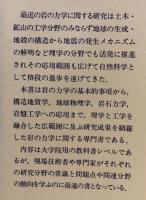 最近の岩の力学に関する研究は土木・
鉱山の工学分野のみならず地球の生成・
地殻の構造から地震の発生メカニズム
の解明など理学の分野でも活発に推進
されその応用範囲も広げて自然科学と
して格段の進歩を遂げてきた。
本書は岩の力学の基本的事項から、
構造地質学、地球物理学、岩石力学、
岩盤工学への応用まで、理学と工学を
融合した広範囲に及ぶ研究成果を網羅
した岩の力学に関する専門書である。
内容は大学院用の教科書レベルであ
るが、現場技術者や専門家がそれぞれ
の研究分野の常識と問題点や関連分野
の動向を学ぶのに最適の書となっている。